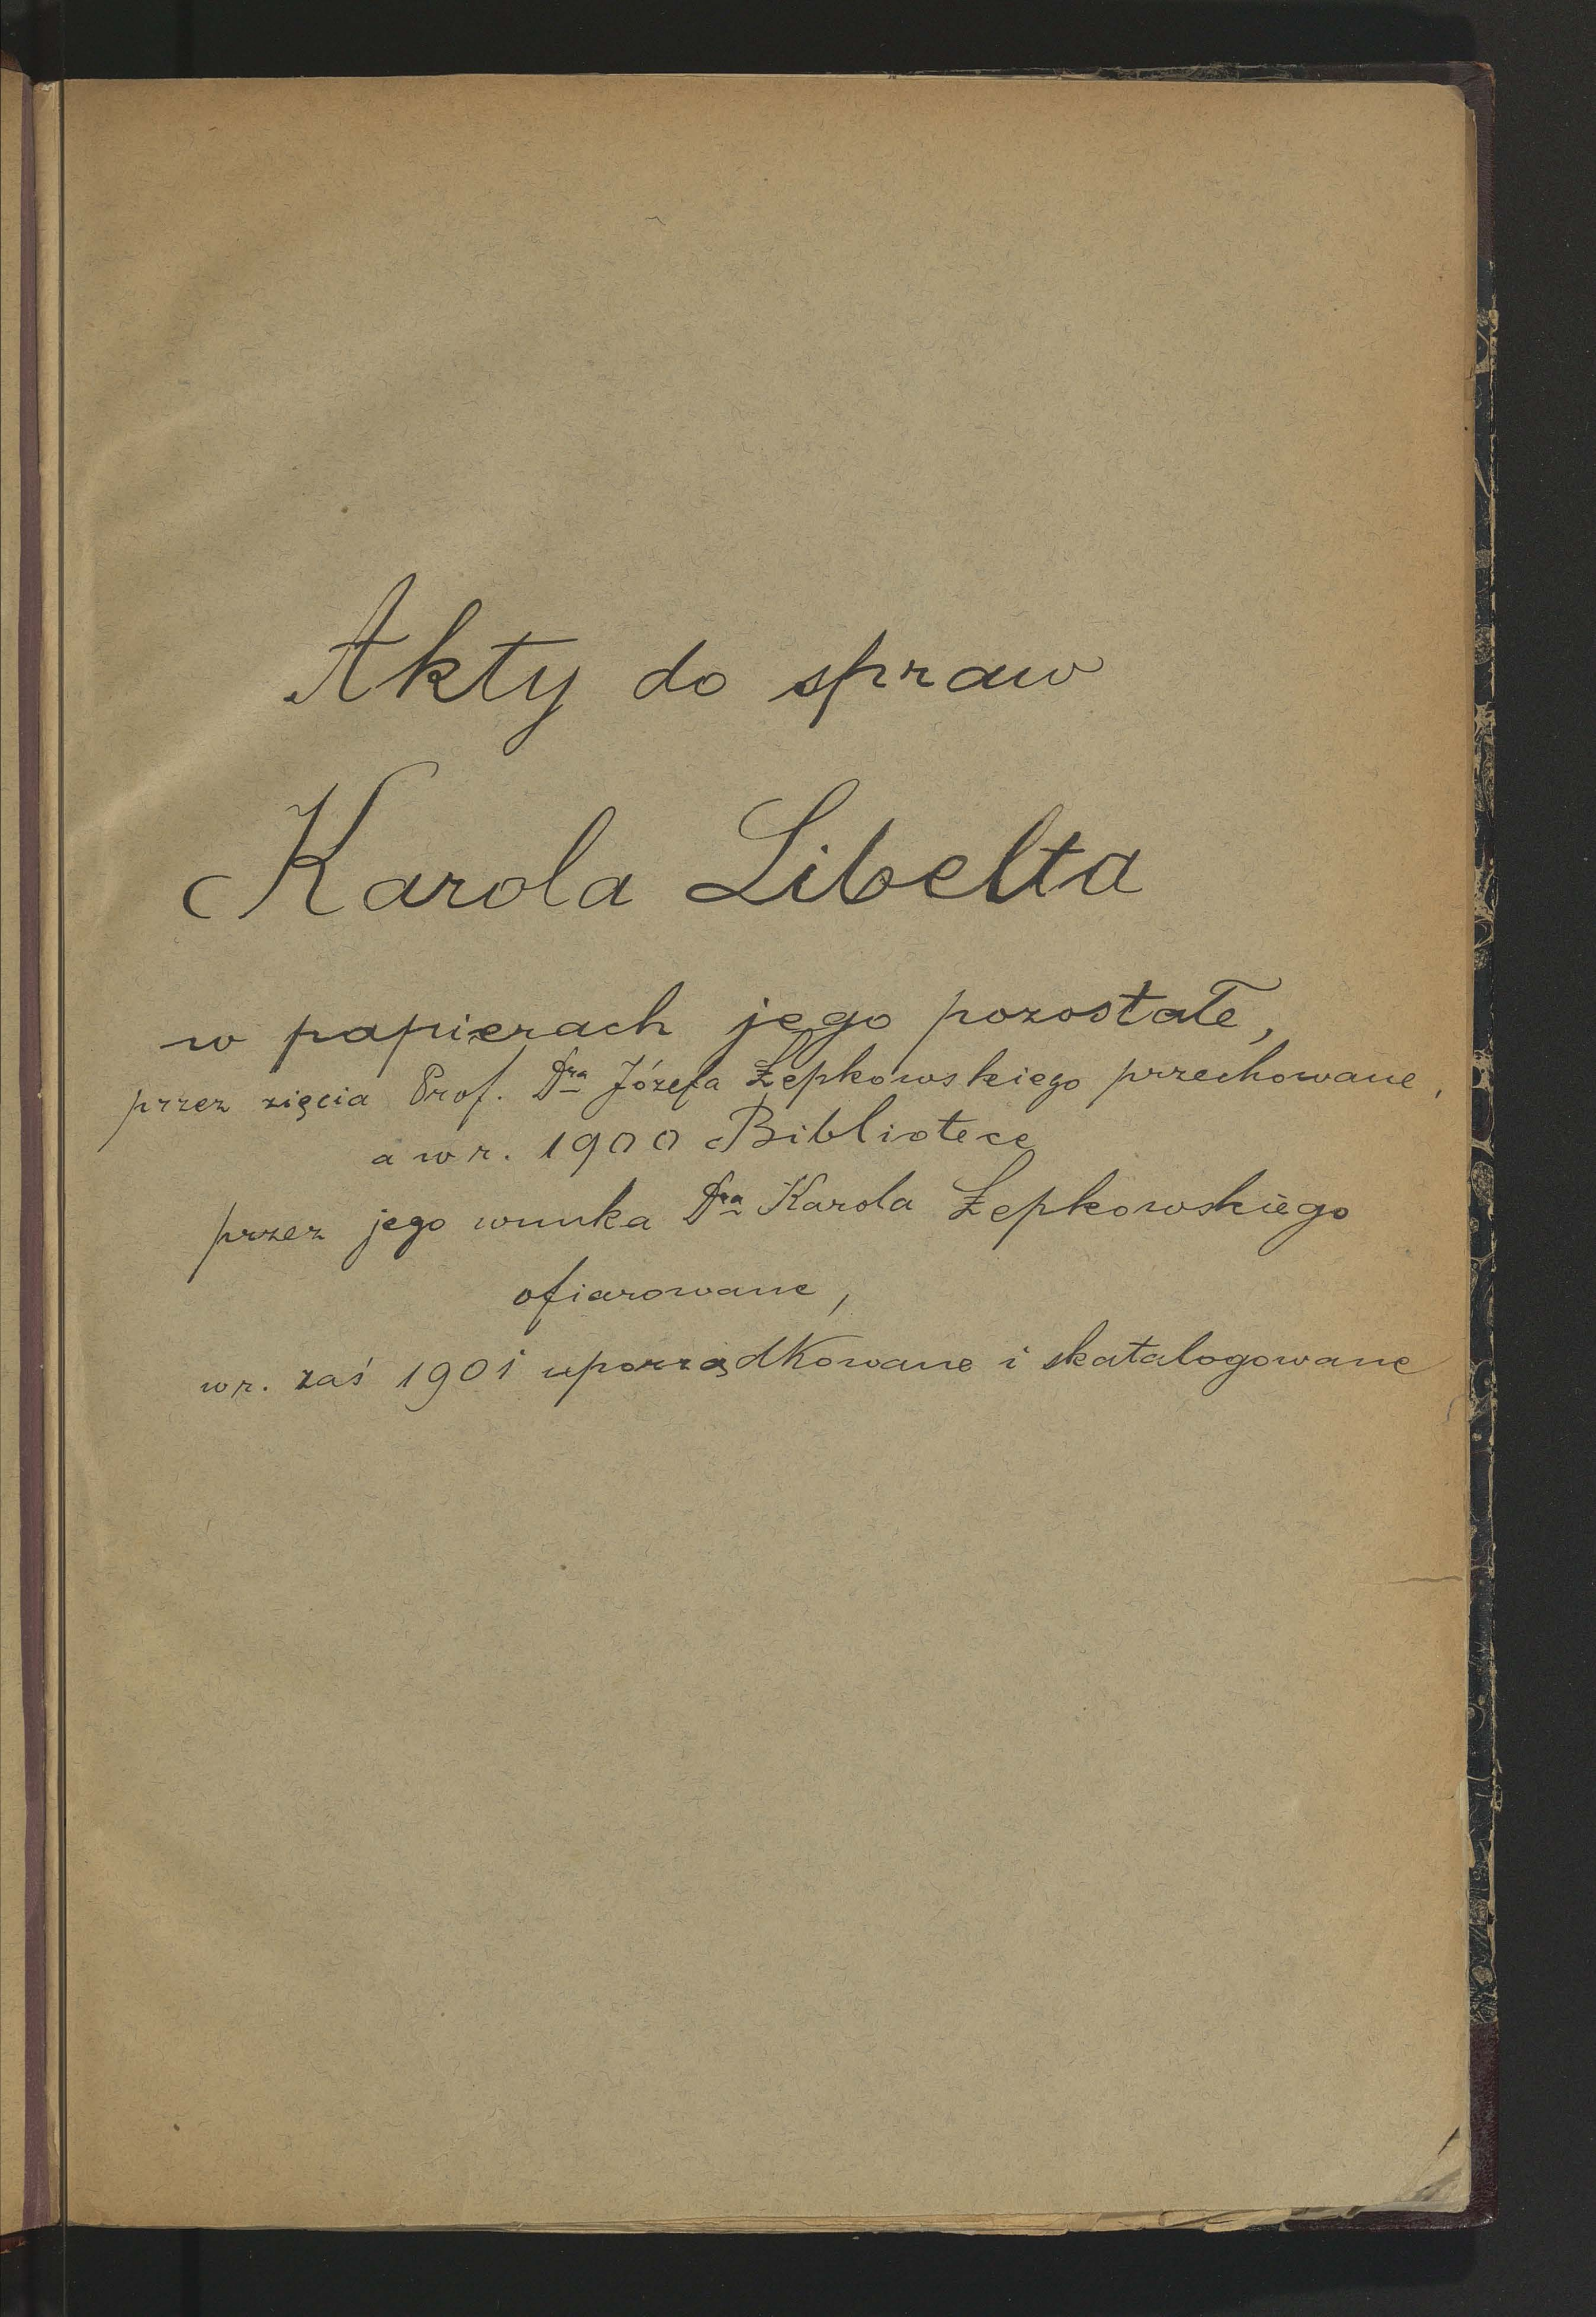 Akty do spraw
Karola Libelta
w papierach jego pozostałe,
przez zięcia Prof. Dra Józefa Łepkowskiego przechowane,
a w r. 1900 Bibliotece
przez jego wnuka Dra Karola Łepkowskiego
ofiarowane,
w r. zaś 1901 uporządkowane i skatalogowane